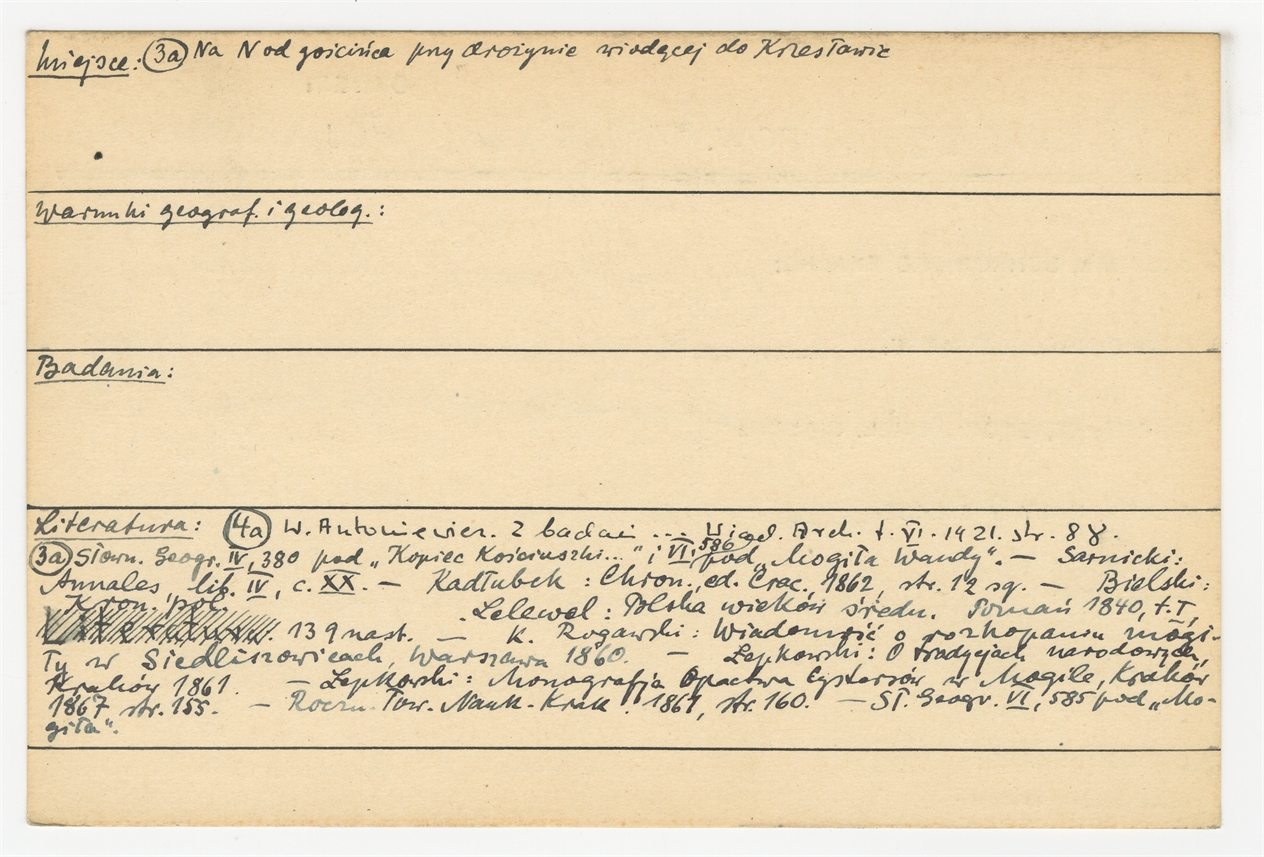 Miejsce: (3a) Na N od gościńca przy drożynie wiodącej do Krzesławic
Warunki geograf. i geolog.:
Badania:
Literatura: (4a) W. Antoniewicz. Z badań ... Wiad. Arch. t. VI. 1921. str. 88.
(3a) Słown. Geogr. IV, 380 pod „Kopiec Kościuszki..." i VI, 586 pod „Mogiła Wandy". — Sarnicki:
Annales, lib. IV, c. XX. — Kadłubek: Chron., ed. Crac. 1862, str. 12 sq. — Bielski:
Kron. pol. Lelewel: Polska wieków średn. Poznań 1840, t. I,
139 nast. — K. Rogawski: Wiadomość o rozkopaniu mogi-
ły w Siedliszowicach, Warszawa 1860. — Lepkowski: O tradycjach narodowych,
Kraków 1861. — Lepkowski: Monografja Opactwa Cystersów w Mogile, Kraków
1867, str. 155. — Roczn. Tow. Nauk. Krak. 1861, str. 160. — Sł. Geogr. VI, 585 pod „Mo-
giła".